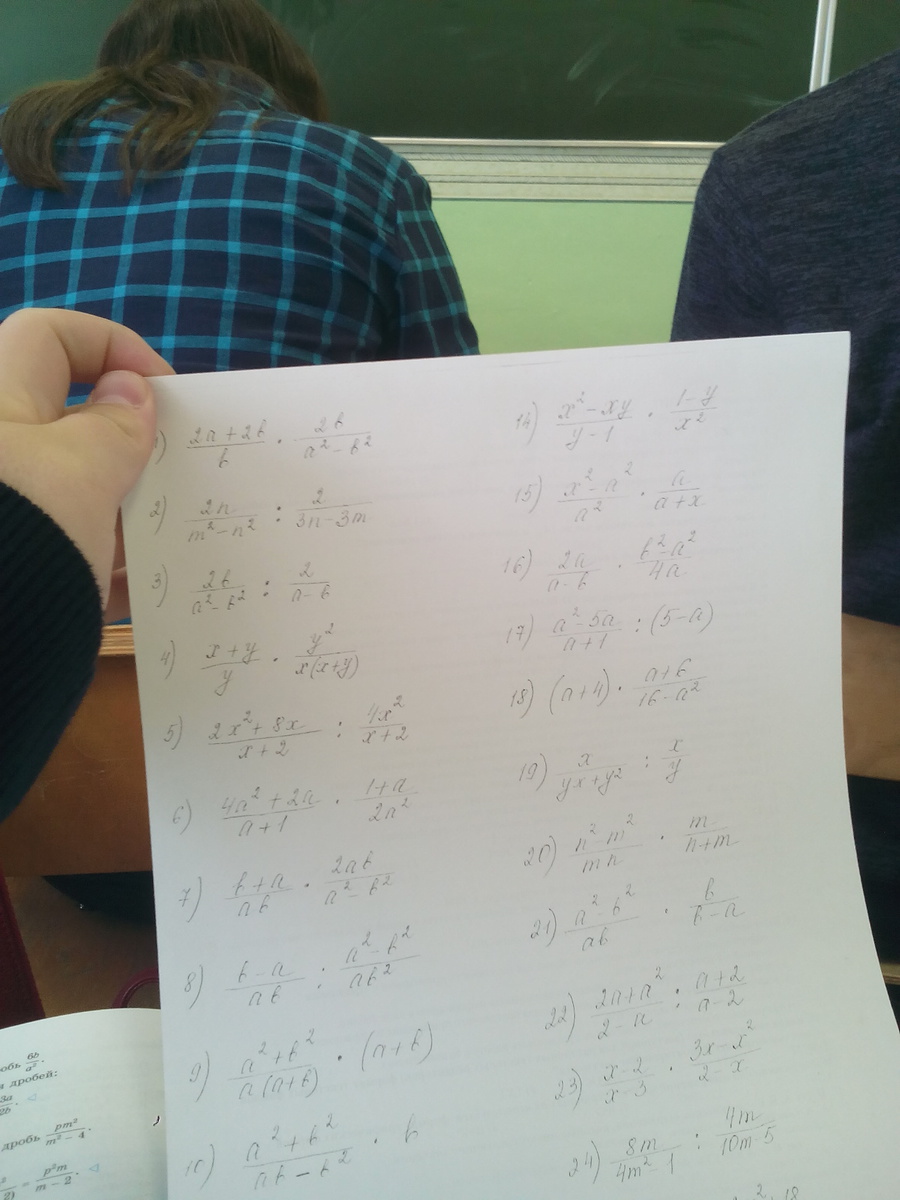 1) \frac{2a+2b}{b} \cdot \frac{2b}{a^2-b^2}
2) \frac{2n}{m^2-n^2} : \frac{2}{3n-3m}
3) \frac{2b}{a^2-b^2} : \frac{2}{a-b}
4) \frac{x+y}{y} \cdot \frac{y^2}{x(x+y)}
5) \frac{2x^2+8x}{x+2} : \frac{4x^2}{x+2}
6) \frac{4a^2+2a}{a+1} \cdot \frac{1+a}{2a^2}
7) \frac{b+a}{ab} \cdot \frac{2ab}{a^2-b^2}
8) \frac{b-a}{ab} : \frac{a^2-b^2}{ab^2}
9) \frac{a^2+b^2}{a(a+b)} \cdot (a+b)
10) \frac{a^2+b^2}{ab-b^2} \cdot b
14) \frac{x^2-xy}{y-1} \cdot \frac{1-y}{x^2}
15) \frac{x^2-a^2}{a^2} \cdot \frac{a}{a+x}
16) \frac{2a}{a-b} \cdot \frac{b^2-a^2}{4a}
17) \frac{a^2-5a}{a+1} : (5-a)
18) (a+4) \cdot \frac{a+b}{16-a^2}
19) \frac{x}{yx+y^2} : \frac{x}{y}
20) \frac{n^2-m^2}{mn} \cdot \frac{m}{n+m}
21) \frac{a^2-b^2}{ab} \cdot \frac{b}{b-a}
22) \frac{2a+a^2}{2-a} : \frac{a+2}{a-2}
23) \frac{x-2}{x-3} \cdot \frac{3x-x^2}{2-x}
24) \frac{8m}{4m^2-1} : \frac{4m}{10m-5}
обь \frac{6b}{a^2}.
дробей:
дробь \frac{pm^2}{m^2-4}.
= \frac{p^2m}{m-2}.